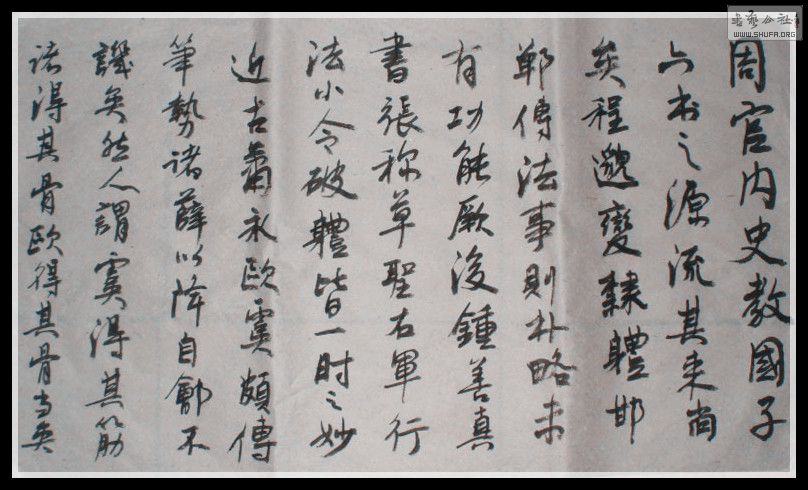 周官内史教國子
六书之源流其来尚
矣程邈變隸體邯
鄲傳法事則朴略未
有功能厥後鍾善真
書張称草聖右軍行
法小令破體皆一时之妙
近古蕭永歐虞頗傳
筆勢诸薛以降自鄶不
譏矣然人謂虞得其筋
诸得其骨歐得其骨当矣
書藝公社
WWW.SHUFA.ORG